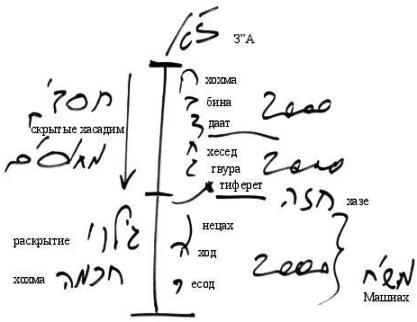 З”А
ח хохма
ב бина 2000
ד даат
ח хесед
ג гвура 2000
тиферет
חסדי'
скрытые хасадим
חזה
хазе
раскрытие
גילוי
нецах
ход
хохма
חכמה
2000
есод
משיח
Машиах